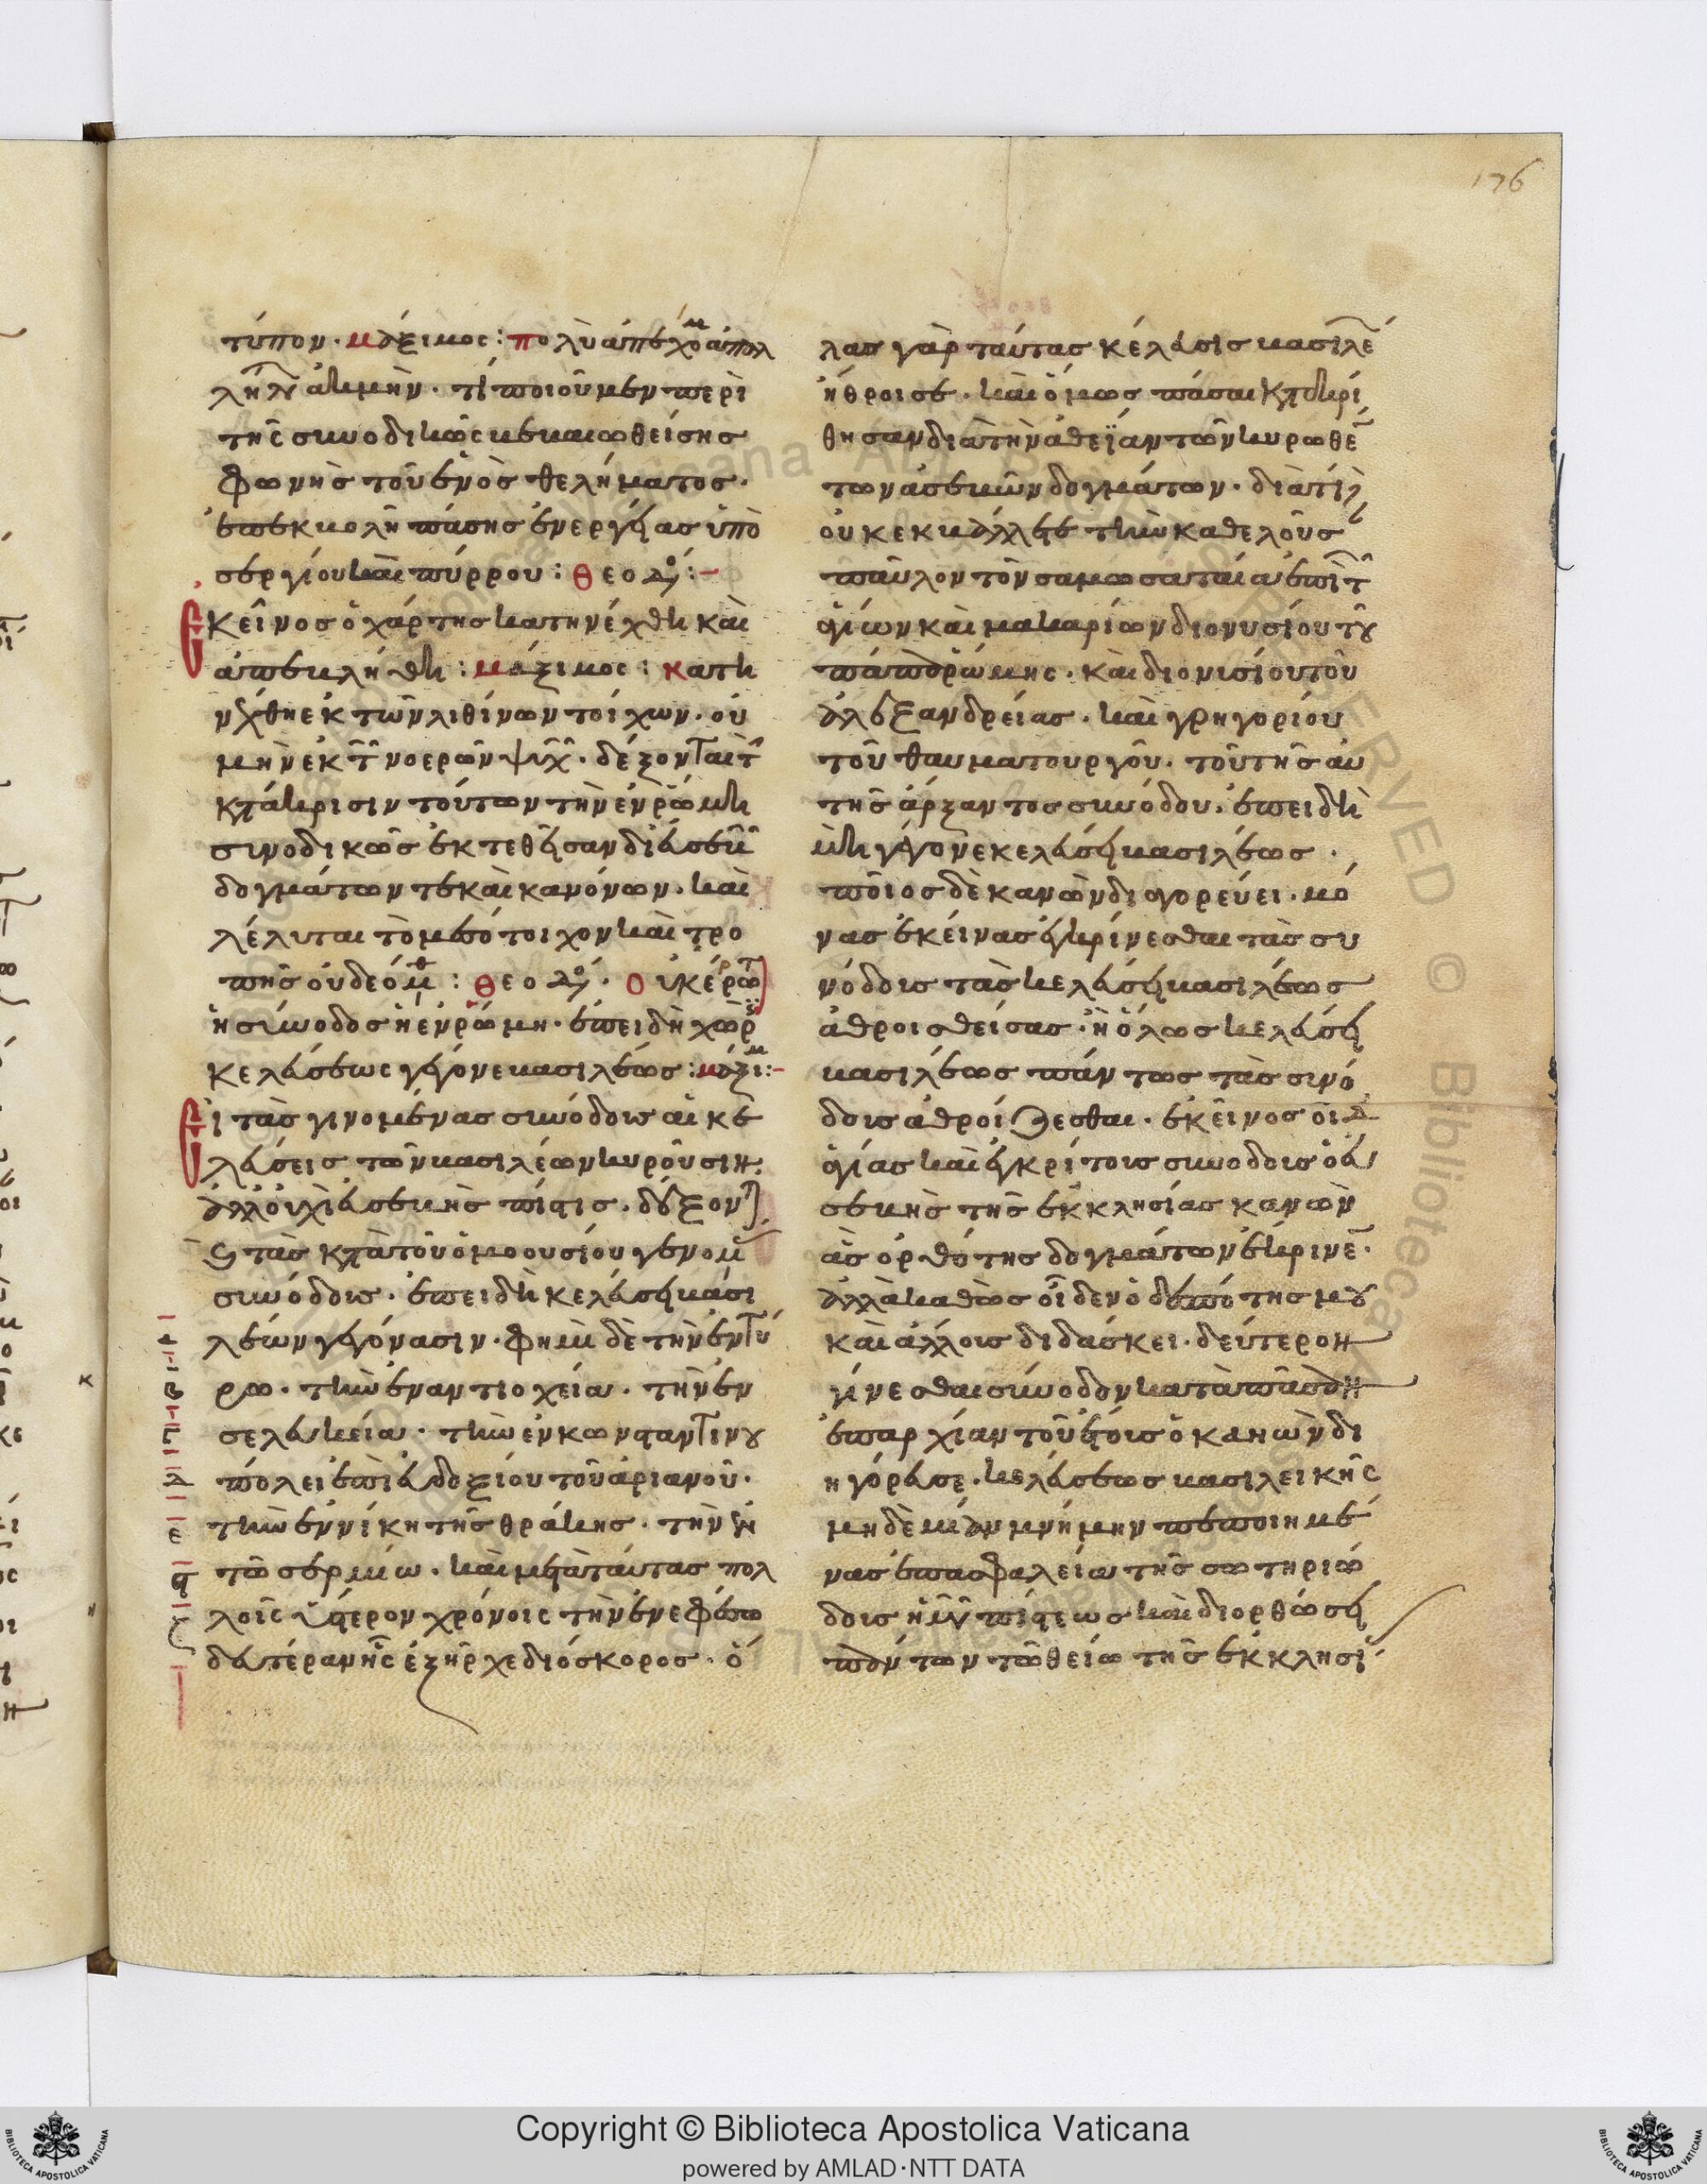 176
τύπον · μάξιμος : πολὺ ἀπέχομ ἀπ ἀλ
λήλων ἀκμὴν · τί ποιοῦμεν περὶ
τῆς συνοδικῶς βεβαιωθείσης
φωνῆς τοῦ ἑνὸς θελήματος ·
ἐπ ἐκβολῆ πάσης ἐνεργείας ὑπὸ
σεργίου καὶ πύρρου : θεοδό :-
Εκεῖνος ὁ χάρτης κατηνέχθη καὶ
ἀπεβλήθη : μάξιμος : κατη
νέχθη ἐκ τῶν λιθίνων τοίχων · οὐ
μὴν ἐκ τῶν νοερῶν ψυχῶν · δέξονται τὴν
κατάκρισιν τούτων τὴν ἐν ῥώμη
συνοδικῶς ἐκτεθεῖσαν δι εὐσεβῶν
δογμάτων τε καὶ κανόνων · καὶ
λέλυται τὸ μεσότοιχον καὶ προ
τροπῆς οὐ δεόμεθ : θεοδό · Οὐκ έρρωτ
ἡ σύνοδος ἡ ἐν ῥώμη · ἐπειδὴ χωρὶς
κελεύσεως γέγονε βασιλέως : μάξιμ :-
Εἰ τὰς γινομένας συνόδους αἱ κε
λεύσεις τῶν βασιλέων κυροῦσιν ·
ἀλλ οὐχὶ εὐσεβὴς πίστις · δέξονται
καὶ τὰς κατὰ τοῦ ὁμοουσίου γενομ
συνόδους · ἐπειδὴ κελεύσει βασι
λέων γεγόνασιν · φημὶ δὲ τὴν ἐν τύ
ρω · τὴν ἐν αντιοχεία · τὴν ἐν
σελευκεία · τὴν ἐν κωνσταντινου
πόλει ἐπὶ εὐδοξίου τοῦ ἀριανοῦ ·
τὴν ἐν νίκη τῆς θράκης · τὴν ἐν
τῶ σερμίω · καὶ μετὰ ταύτας πολ
λοῖς ὕστερον χρόνοις τὴν ἐν ἐφέσω
δευτέραν ἧς ἐξῆρχε διόσκορος · ὁ
λας γὰρ ταύτας κέλευσις βασιλέ
ἤθροισε · καὶ ὅμως πᾶσαι κατεκρί
θησαν διὰ τὴν ἀθεΐαν τῶν κυρωθέν
των ἀσεβῶν δογμάτων · διὰ τί
οὐκ ἐκβάλλετε τὴν καθελοῦσ
παῦλον τὸν σαμωσατέα ἐπὶ τῶν
ἁγίων καὶ μακαρίων διονυσίου τοῦ
πάπα ῥώμης · καὶ διονισίου τοῦ
ἀλεξανδρείας · καὶ γρηγορίου
τοῦ θαυματουργοῦ · τοῦ τῆς αὐ
τῆς ἄρξαντος συνόδου · ἐπειδὴ
μὴ γέγονε κελεύσει βασιλέως ·
ποῖος δὲ κανὼν διαγορεύει · μό
νας ἐκείνας εγκρίνεσθαι τὰς συ
νόδους τὰς κελεύσει βασιλέως
ἀθροισθείσας · ἢ ὅλως κελεύσει
βασιλέως πάντως τὰς συνό
δους ἀθροίζεσθαι · ἐκείνας οἶδ
ἁγίας καὶ ἐγκρίτους συνόδους ὁ εὐ
σεβὴς τῆς ἐκκλησίας κανὼν
ἃς ὀρθότης δογμάτων ἔκρινε ·
ἀλλὰ καθὼς οἶδεν ὁ δεσπότης μου
καὶ ἄλλους διδάσκει · δεύτερον
γίνεσθαι σύνοδον κατὰ πᾶσαν
ἐπαρχίαν τοῦ ἔτους ὁ κανὼν δι
ηγόρευσε · κελεύσεως βασιλεικῆς
μηδὲ μίαν μνήμην πεποιημέ
νος ἐπ ασφαλεία τῆς σωτηριώ
δους ἡμῶν πίστεως καὶ διορθώσει
πάντων τῶ θείω τῆς ἐκκλησί
Copyright © Biblioteca Apostolica Vaticana
powered by AMLAD·NTT DATA